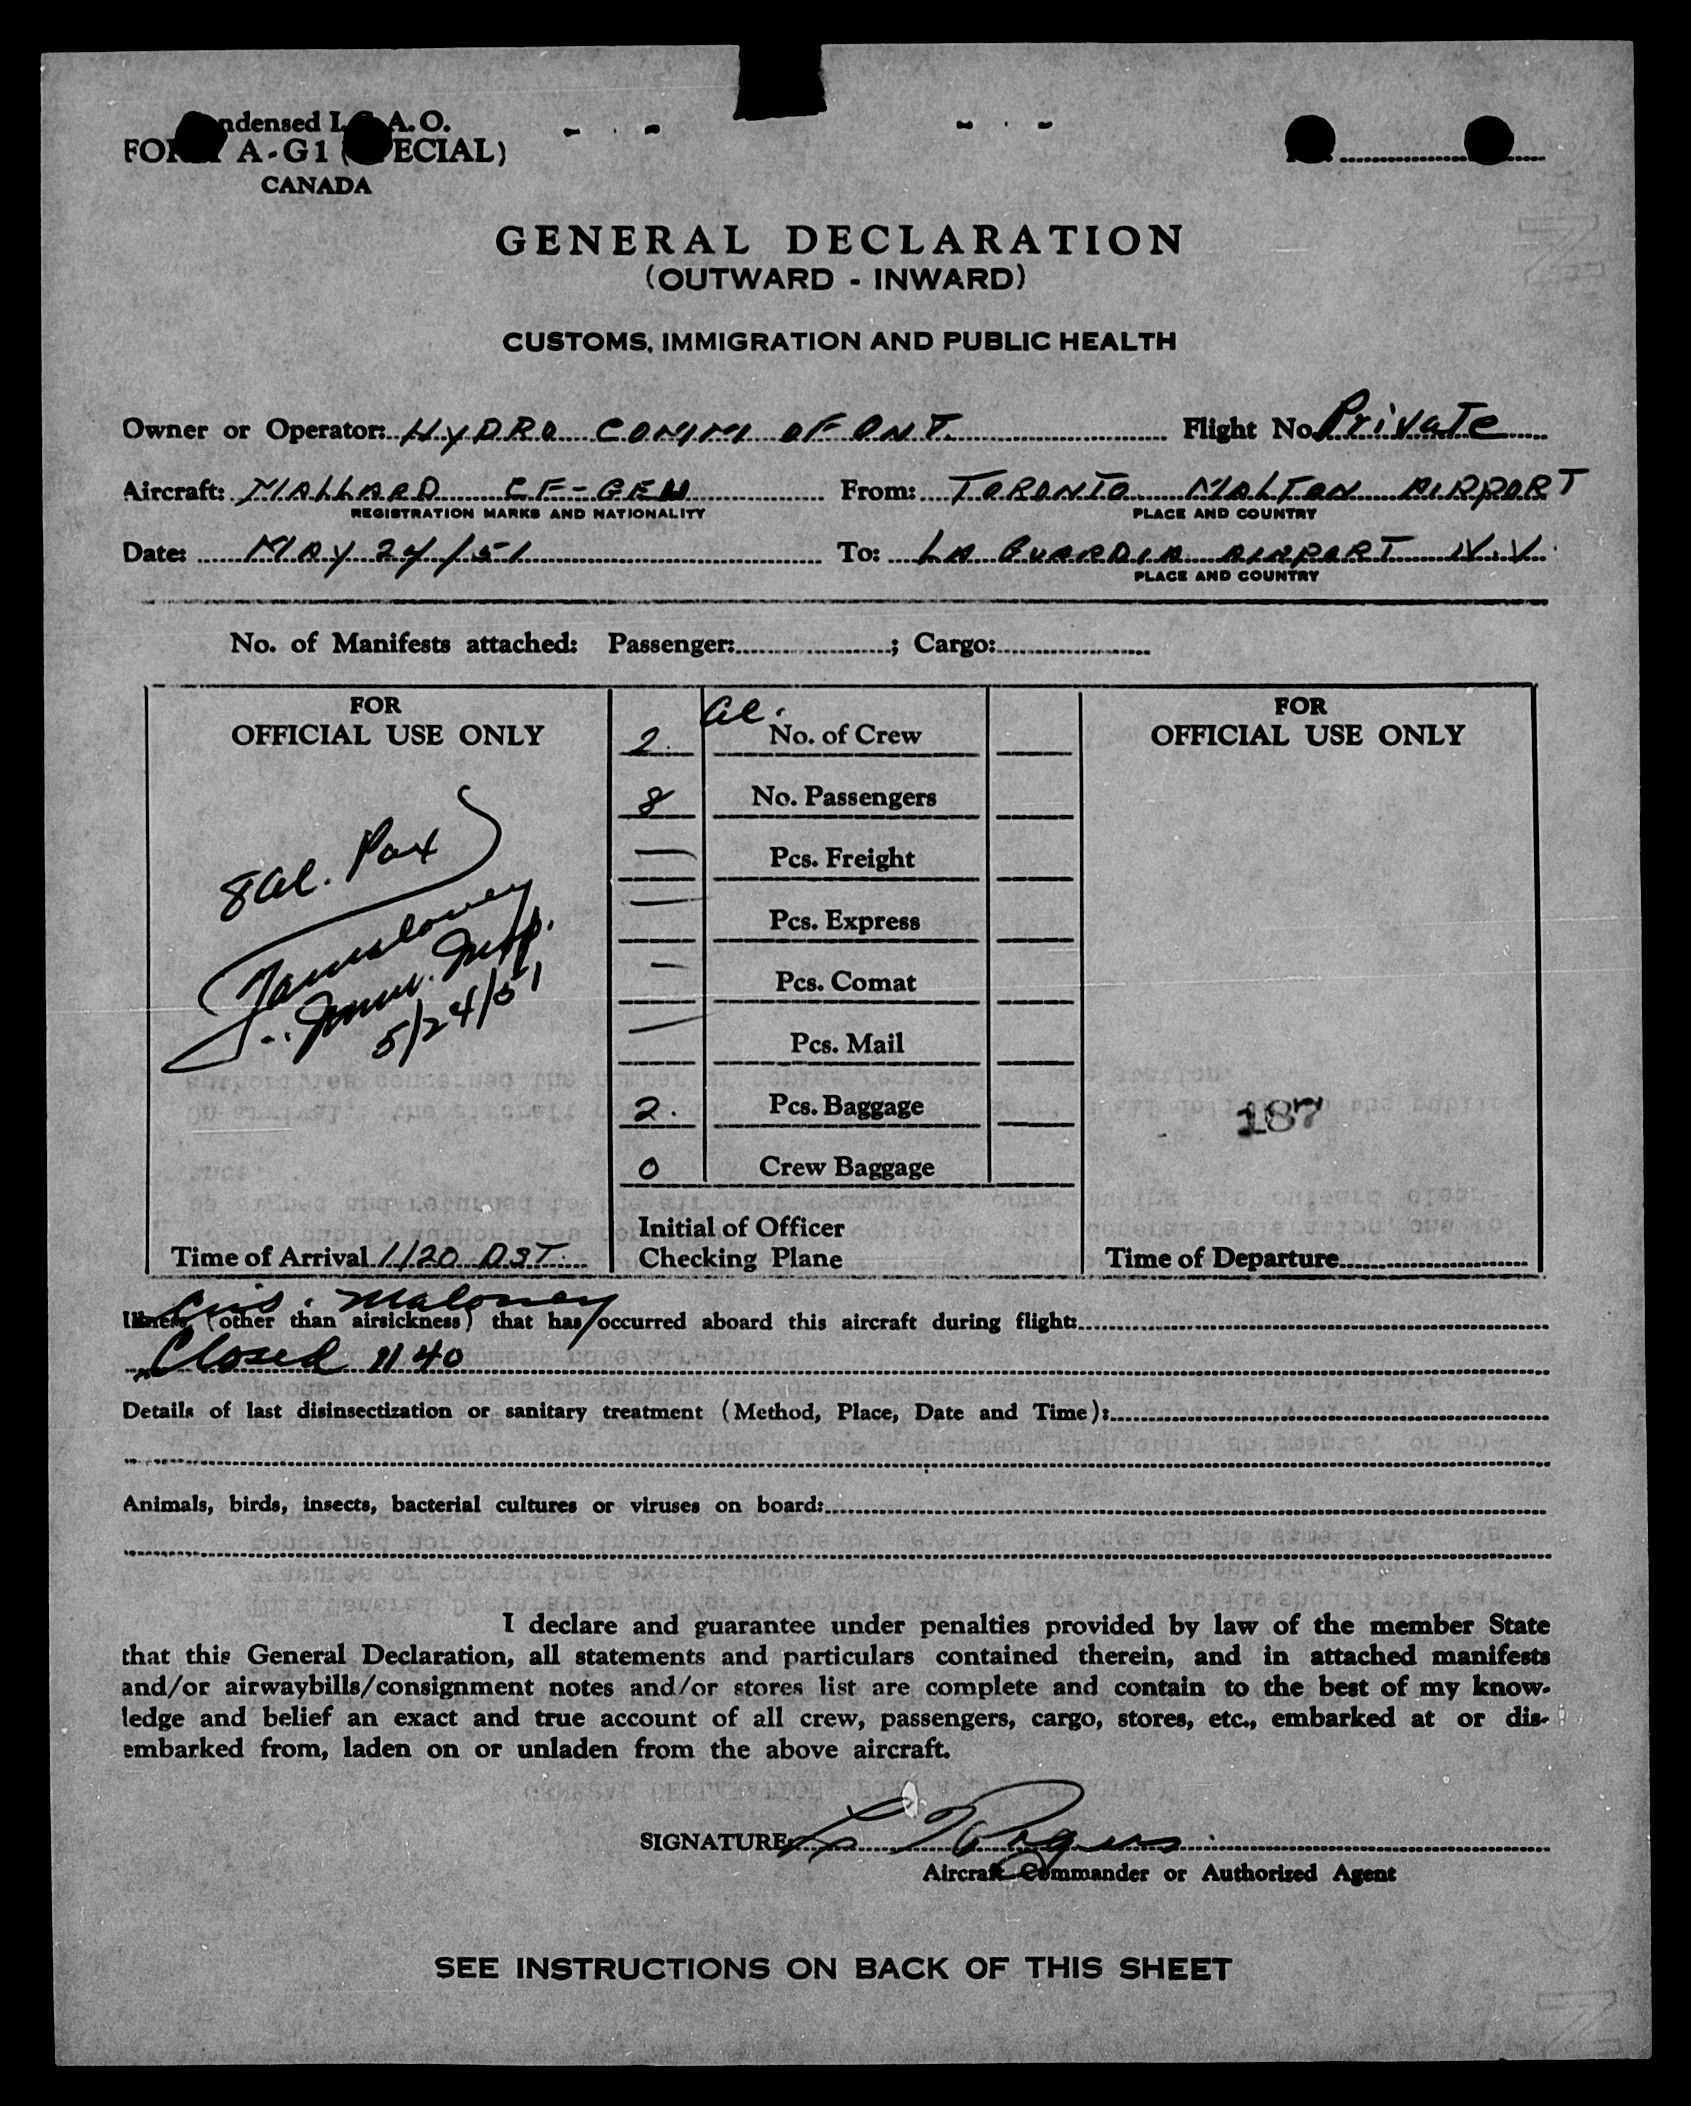 Condensed I.C.A.O.
FORM A-G1 (SPECIAL)
CANADA
GENERAL DECLARATION
(OUTWARD - INWARD)
CUSTOMS, IMMIGRATION AND PUBLIC HEALTH
Owner or Operator: HYDRO COMM OF ONT. Flight No. Private
Aircraft: MALLARD CF-GEW From: TORONTO MALTON AIRPORT
REGISTRATION MARKS AND NATIONALITY PLACE AND COUNTRY
Date: MAY 24/51 To: LA GUARDIA AIRPORT N.Y.
PLACE AND COUNTRY
No. of Manifests attached: Passenger: ; Cargo:
FOR
OFFICIAL USE ONLY
8 al. Pax
Immr. Insp.
5/24/51
Time of Arrival 1120 DST.
al.
2. No. of Crew
8 No. Passengers
— Pcs. Freight
— Pcs. Express
— Pcs. Comat
— Pcs. Mail
2. Pcs. Baggage
0 Crew Baggage
Initial of Officer
Checking Plane
FOR
OFFICIAL USE ONLY
187
Time of Departure
Cus. Maloney
Illness (other than airsickness) that has occurred aboard this aircraft during flight:
Closed 1140
Details of last disinsectization or sanitary treatment (Method, Place, Date and Time):
Animals, birds, insects, bacterial cultures or viruses on board:
I declare and guarantee under penalties provided by law of the member State
that this General Declaration, all statements and particulars contained therein, and in attached manifests
and/or airwaybills/consignment notes and/or stores list are complete and contain to the best of my know-
ledge and belief an exact and true account of all crew, passengers, cargo, stores, etc., embarked at or dis-
embarked from, laden on or unladen from the above aircraft.
SIGNATURE
Aircraft Commander or Authorized Agent
SEE INSTRUCTIONS ON BACK OF THIS SHEET